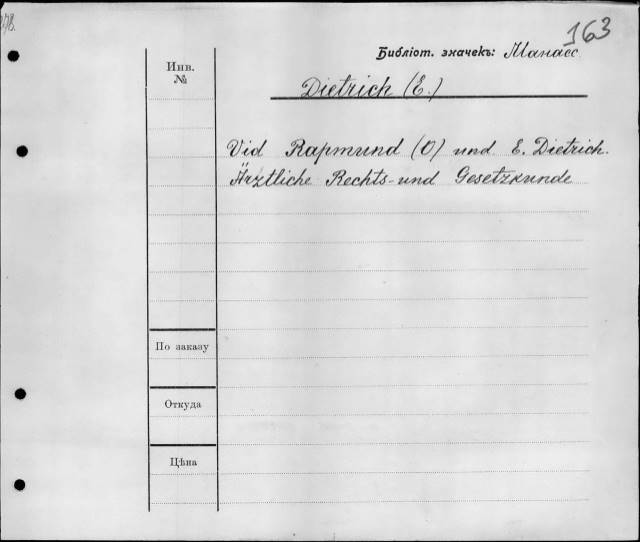 163
Библіот. значекъ: Манасс
Инв.
№
Dietrich (E.)
Vid Rapmund (O) und E. Dietrich.
Ärztliche Rechts- und Gesetzkunde
По заказу
Откуда
Цѣна